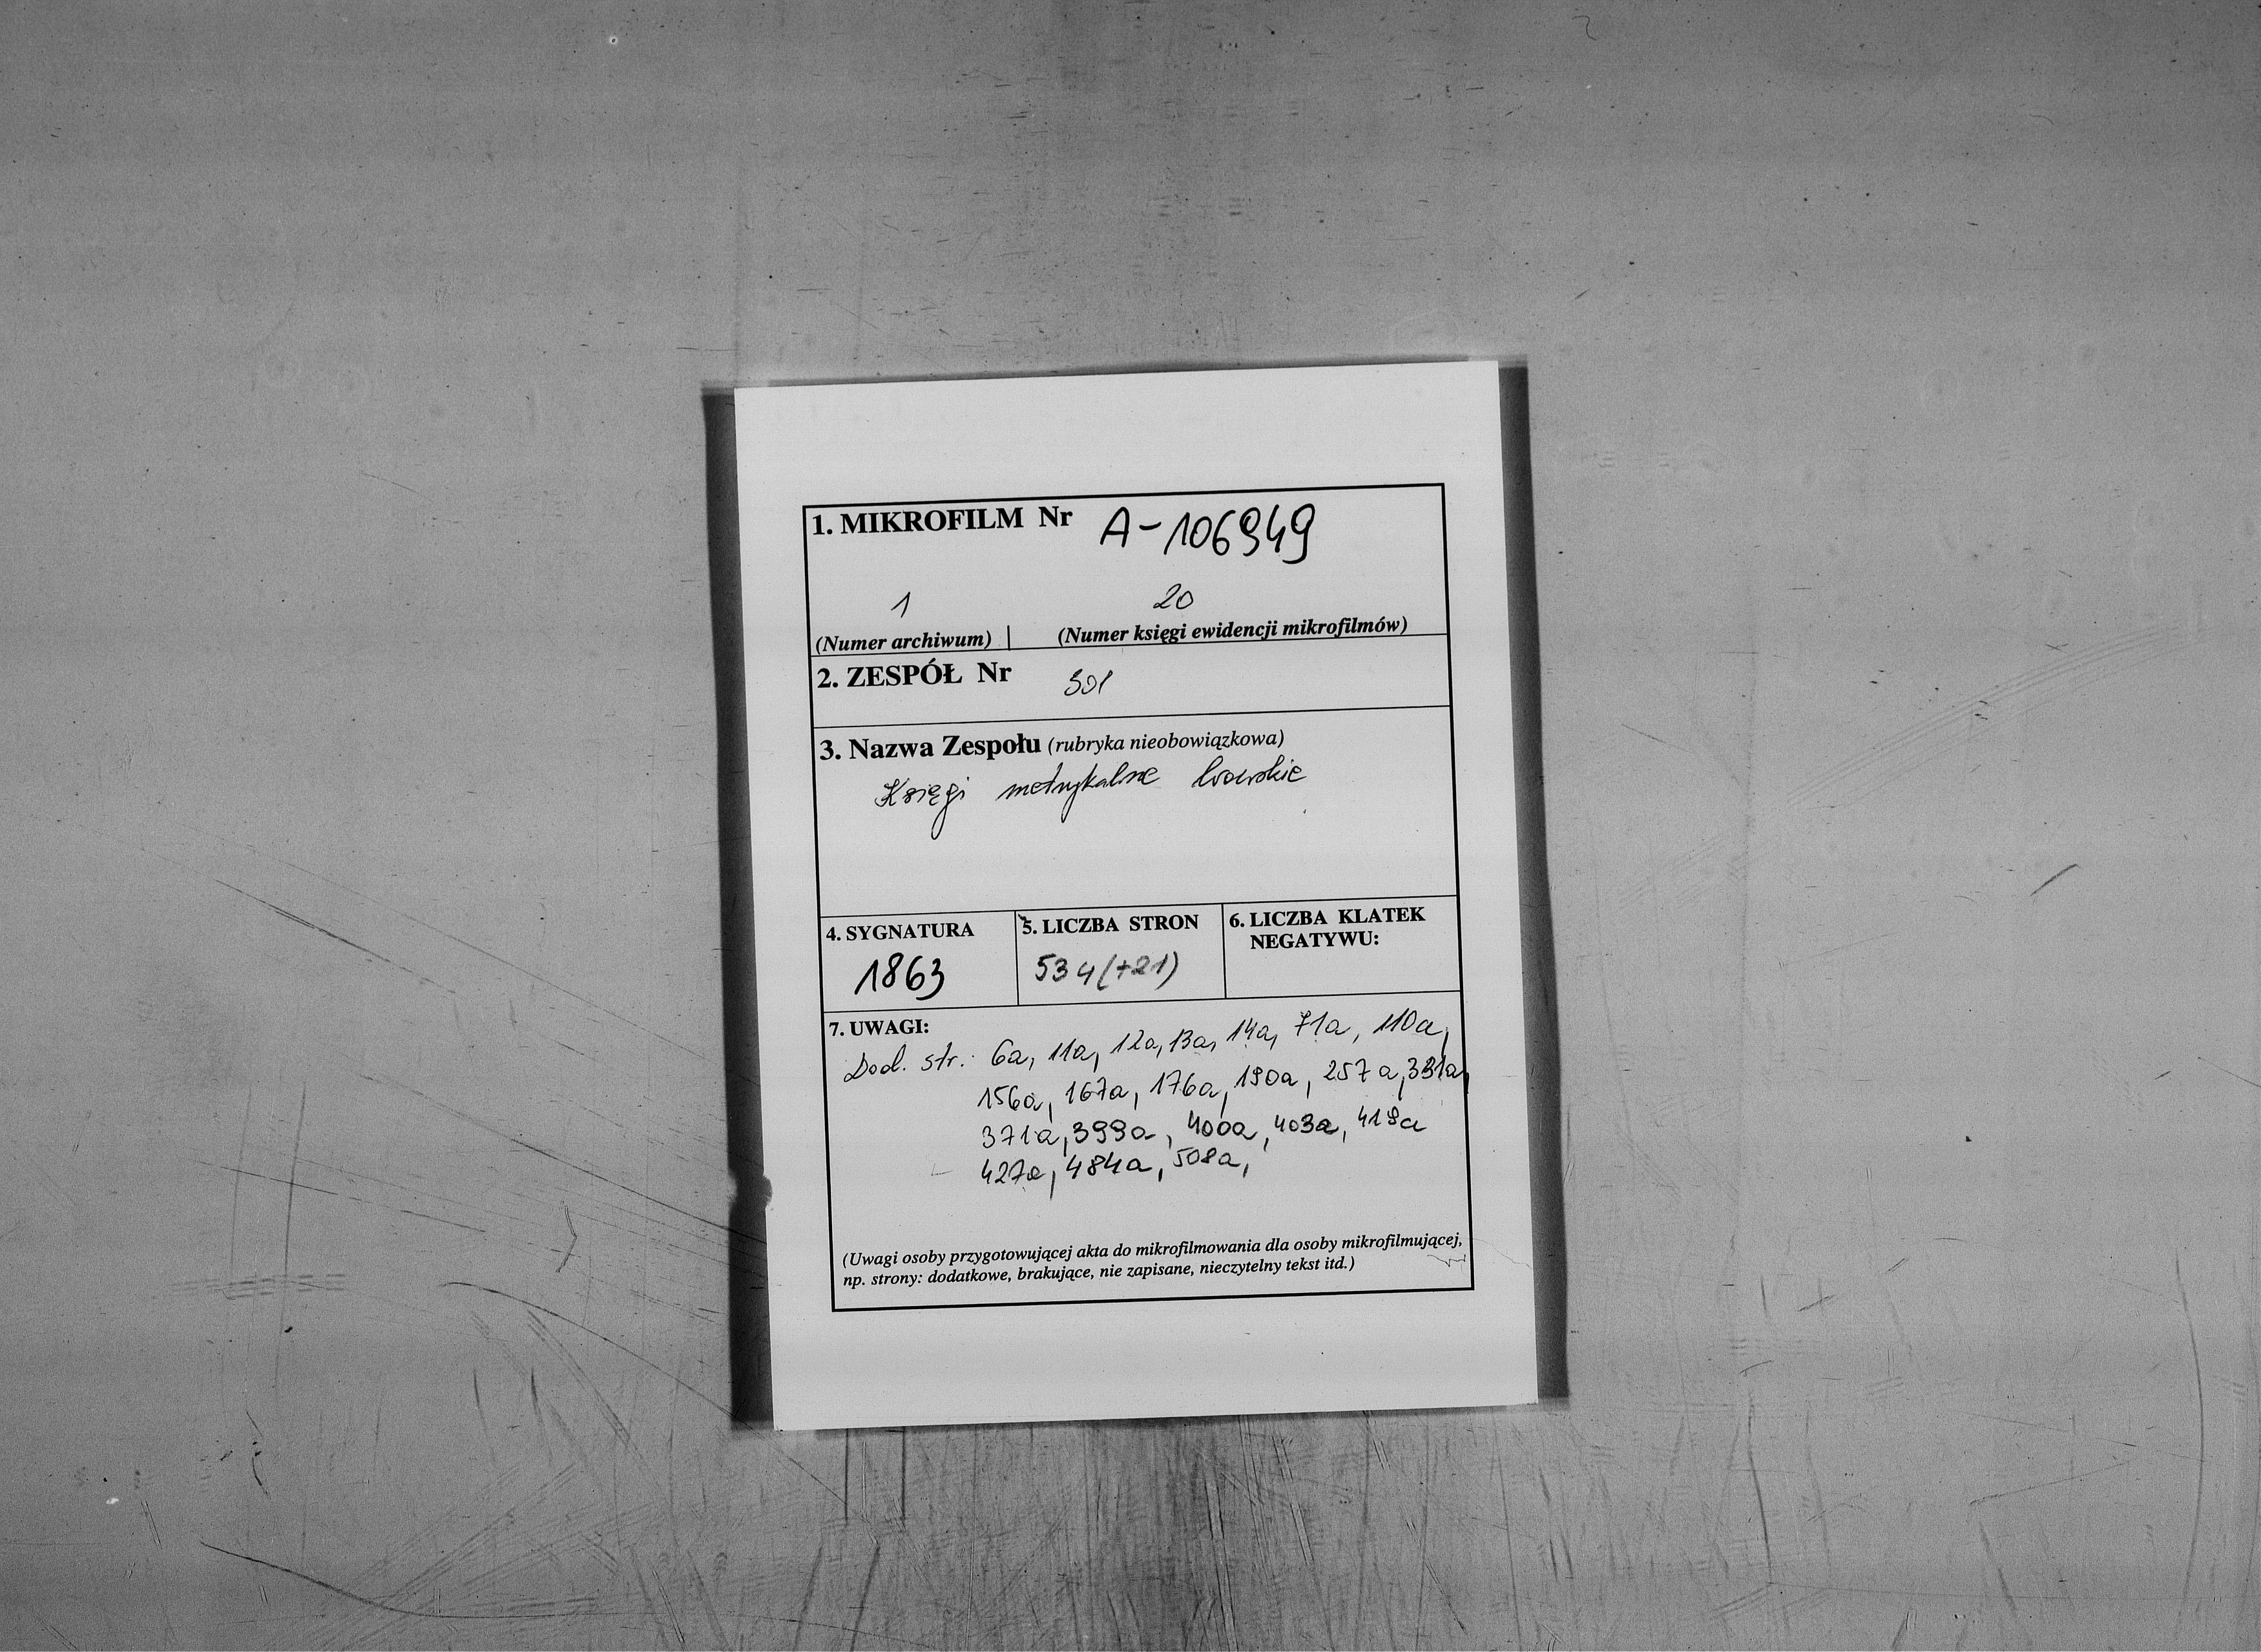 1. MIKROFILM Nr A-106949
1 20
(Numer archiwum) | (Numer księgi ewidencji mikrofilmów)
2. ZESPÓŁ Nr 301
3. Nazwa Zespołu (rubryka nieobowiązkowa)
Księgi metrykalne lwowskie
4. SYGNATURA 5. LICZBA STRON 6. LICZBA KLATEK
NEGATYWU:
1863 534 (+21)
7. UWAGI:
Dod. str.: 6a, 11a, 12a, 13a, 14a, 71a, 110a,
156a, 167a, 176a, 190a, 257a, 331a,
371a, 399a, 400a, 403a, 419a
427a, 484a, 508a,
(Uwagi osoby przygotowującej akta do mikrofilmowania dla osoby mikrofilmującej,
np. strony: dodatkowe, brakujące, nie zapisane, nieczytelny tekst itd.)